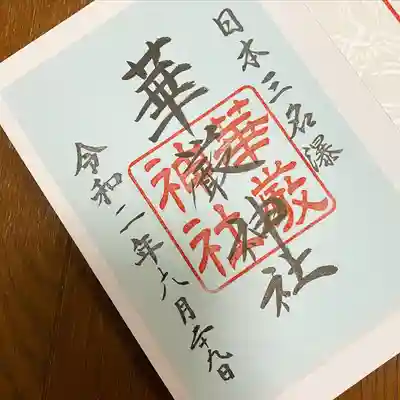 日本三名瀑
華厳神社
華厳
神社
令和二年八月二十九日